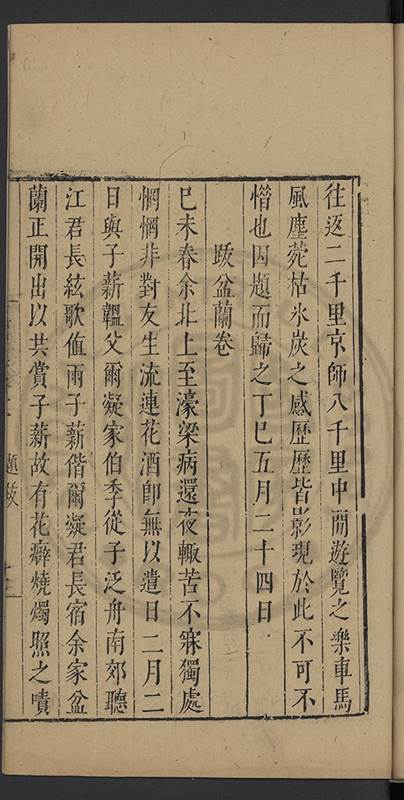 往返二千里京師八千里中間遊覽之樂車馬
風塵菀枯氷炭之感歷歷皆影現於此不可不
惜也因題而歸之丁巳五月二十四日
跋盆蘭卷
巳未春余北上至濠梁病還夜輙苦不寐獨處
惘惘非對友生流連花酒卽無以遣日二月二
日與子薪韞父爾凝家伯季從子泛舟南郊聽
江君長絃歌值雨子薪偕爾凝君長宿余家盆
蘭正開出以共賞子薪故有花癖燒燭照之嘖
題跋